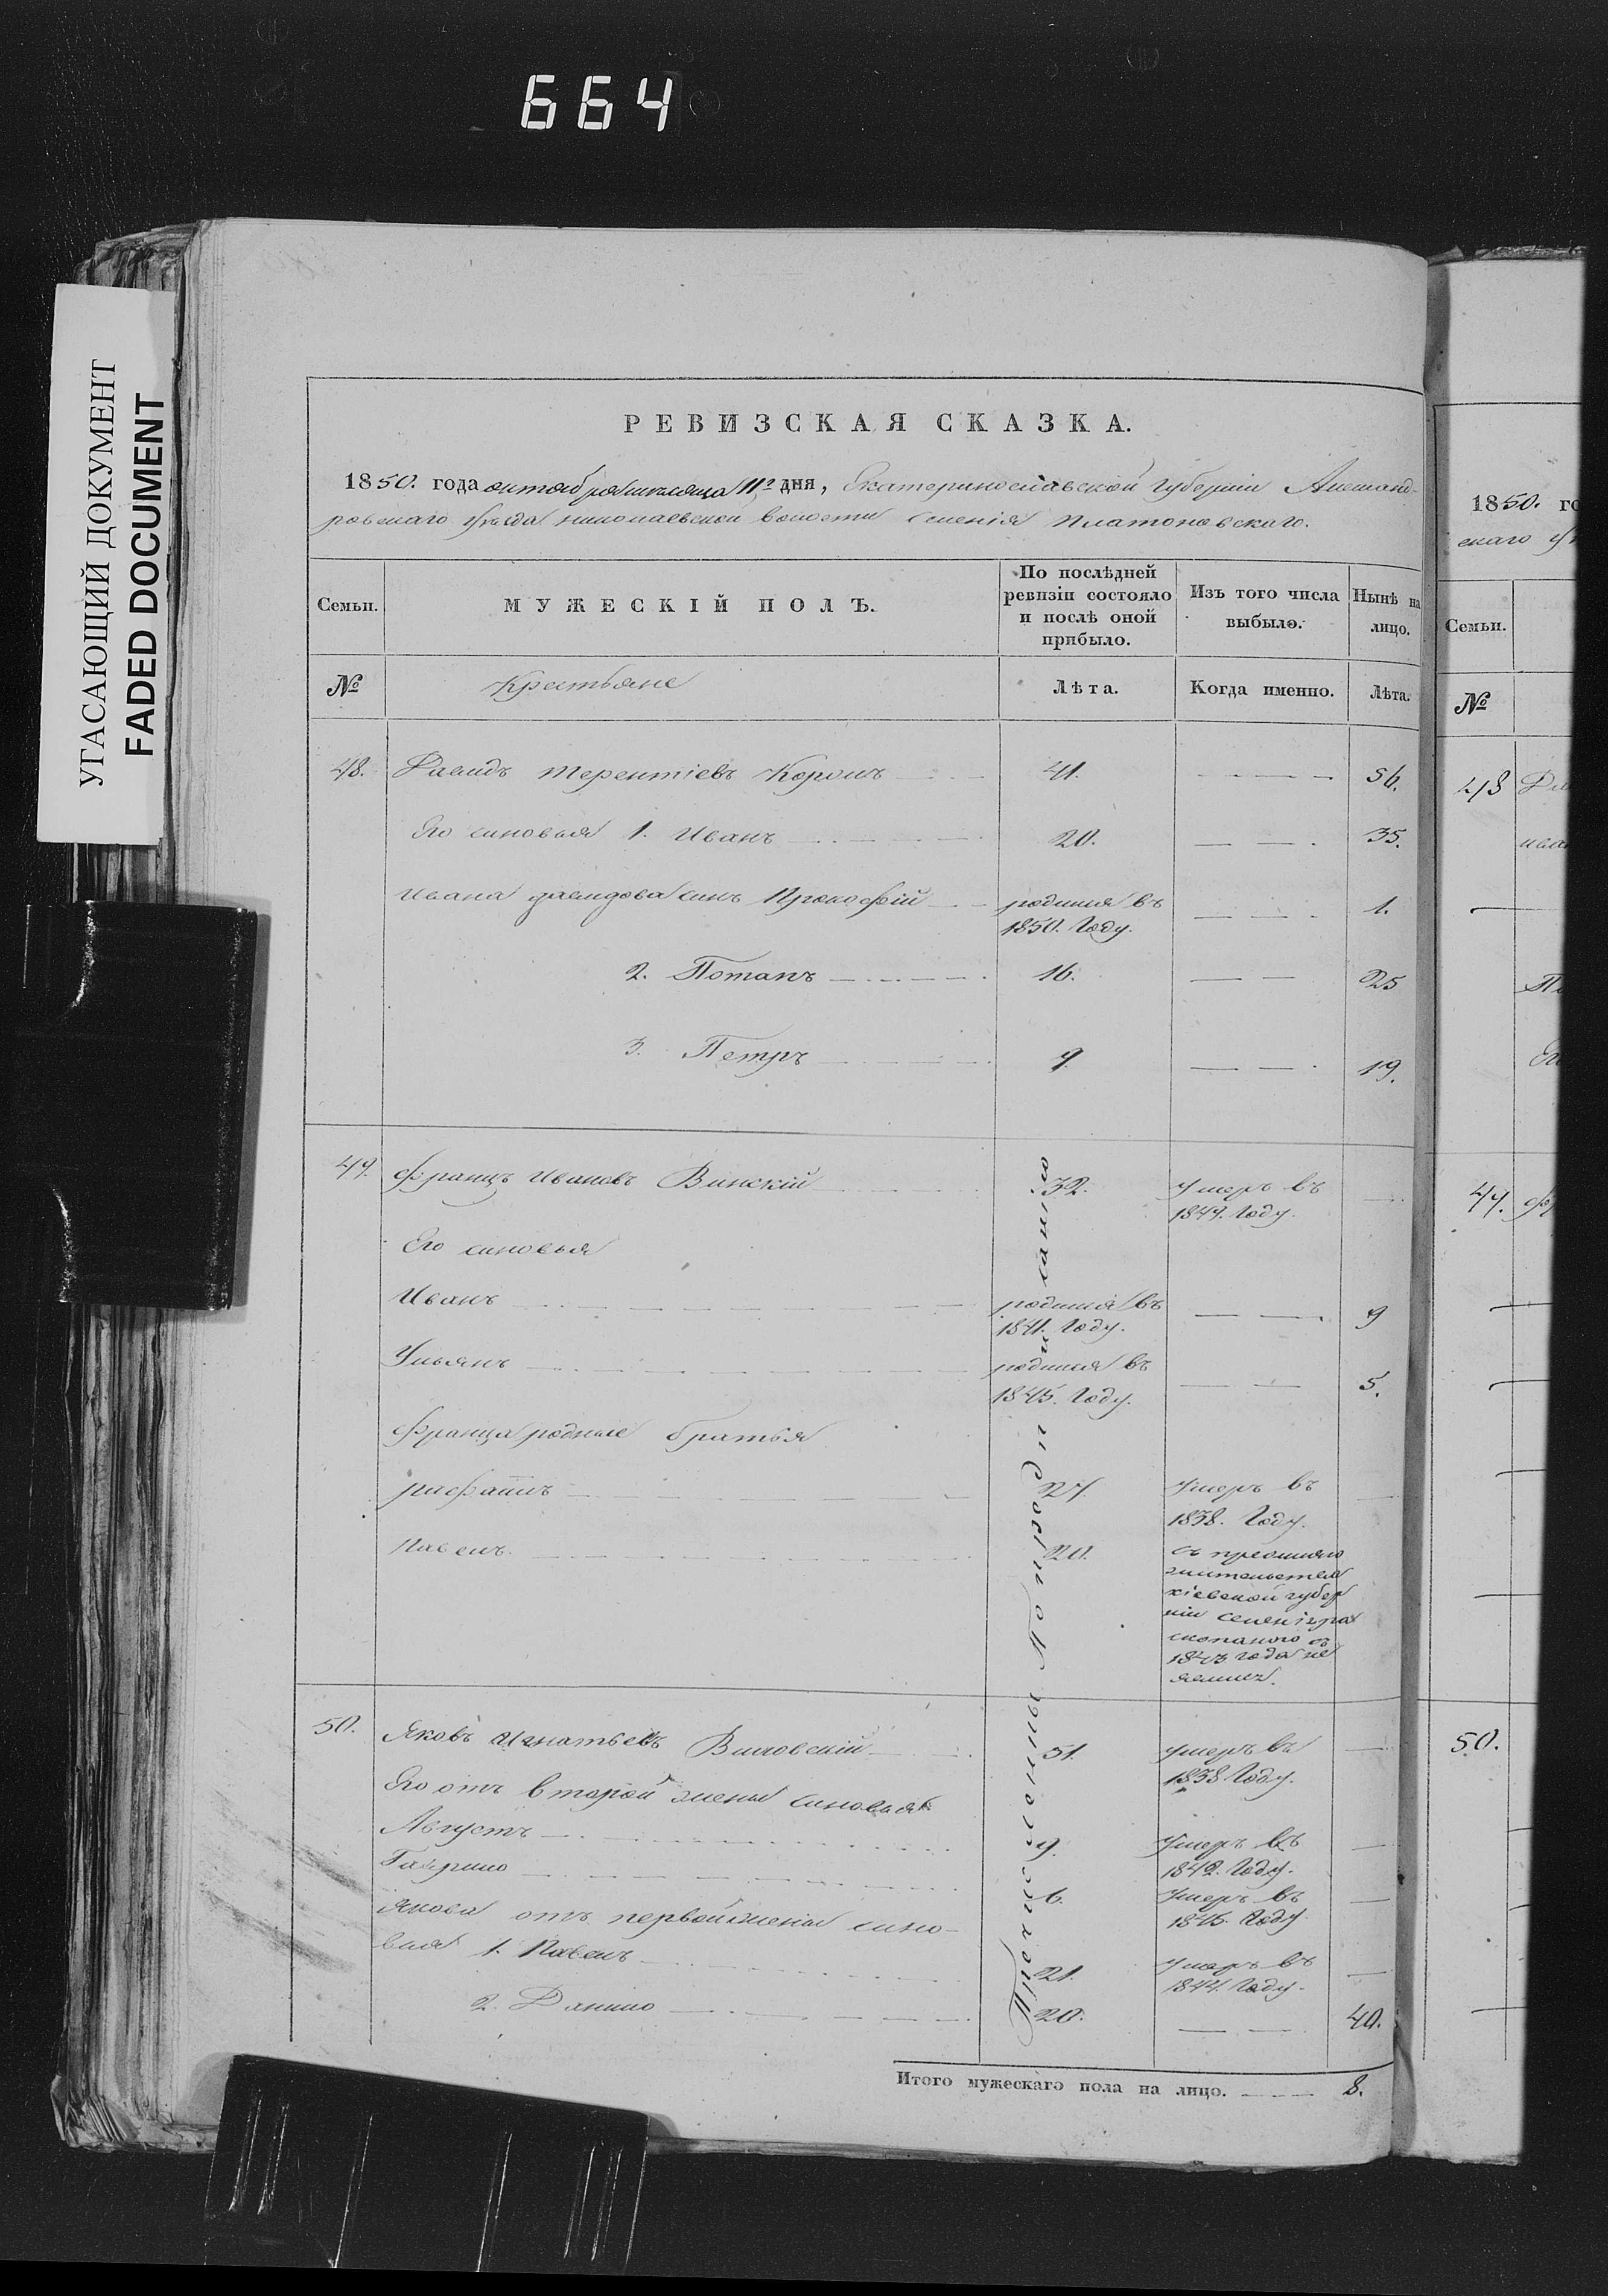 664
УГАСАЮЩИЙ ДОКУМЕНТ
FADED DOCUMENT
РЕВИЗСКАЯ СКАЗКА.
1850. года октября месяца 11го дня, Екатеринославской губернии Александ-
ровскаго уезда николаевской волости селенія Платоновскаго.
Семьи.
МУЖЕСКІЙ ПОЛЪ.
По послѣдней ревизіи состояло и послѣ оной прибыло.
Изъ того числа выбыло.
Нынѣ на лицо.
№ Крестьяне Лѣта. Когда именно. Лѣта.
48. Давидъ терентіевъ Коромъ 41. 56.
Его синовья 1. Иванъ 20. 35.
Ивана давидова синъ Прокофій родился въ 1.
1850. Году.
2. Потапъ 16. 25
3. Петръ 9. 19.
49. Францъ Ивановъ Винскій 32. Умеръ въ
1849. Году.
Его синовья
Иванъ родился въ 9
1841. Году.
Ульянъ родился въ 5.
1845. Году.
Франца родные братья
27. Умеръ въ
1838. Году.
Павелъ 20. съ прежняго
жительства
кіевской губер
ніи
1843 года не
явился.
50. Яковъ Игнатьевъ 51. умеръ въ
1838 Году.
Его отъ второй жены синовья
Августъ 9. Умеръ въ
1842. Году.
Гаврило 6. Умеръ въ
1845. Году
Якова отъ первой жены сино-
вья 1. Павелъ 21. Умеръ въ
1844. Году.
2. Данило 20. 40.
Итого мужескаго пола на лицо. 8.
1850. го
скаго
Семьи.
№
48
49.
50.